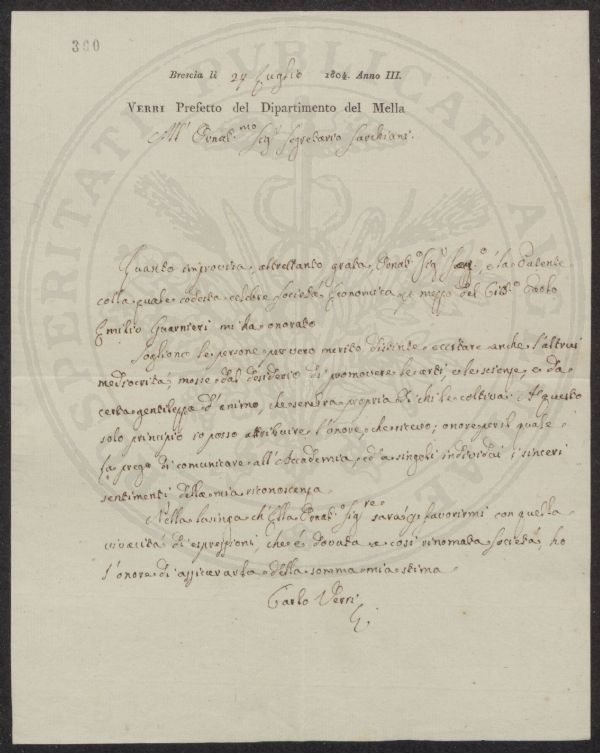 360
Brescia li 24 Luglio 1804. Anno III.
VERRI Prefetto del Dipartimento del Mella
All' Ornat.mo Sig.r Segretario Sarchiani.
Quanto improvvisa, altrettanto grata, Ornat.o Sig.r Seg.o, è la Patente
colla quale codesta celebre Società Economica p mezzo del Citt.o Paolo
Emilio Guarnieri mi ha onorato
Sogliono le persone per vero merito distinte eccitare anche l'altrui
mediocrità mosse dal desiderio di promovere le arti, e le scienze, e da
certa gentilezza d'animo, che sembra propria di chi le coltiva. A questo
solo principio io posso attribuire l'onore, che ricevo; onore per il quale
la prego di comunicare all'Accademia, ed a singoli individui i sinceri
sentimenti della mia riconoscenza.
Nella lusinga ch'Ella Ornat.o Sig.re sarà p favorirmi con quella
vivacità di espressioni, che è dovuta a così rinomata Società, ho
l'onore di assicurarla della somma mia stima
Carlo Verri
SPERITATI PUBLICAE AUG